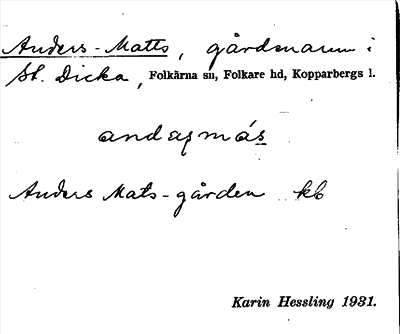 Anders-Matts, gårdsnamn i
St. Dicka, Folkärna sn, Folkare hd, Kopparbergs l.
andasmás
Anders Mats-gården kb
Karin Hessling 1931.